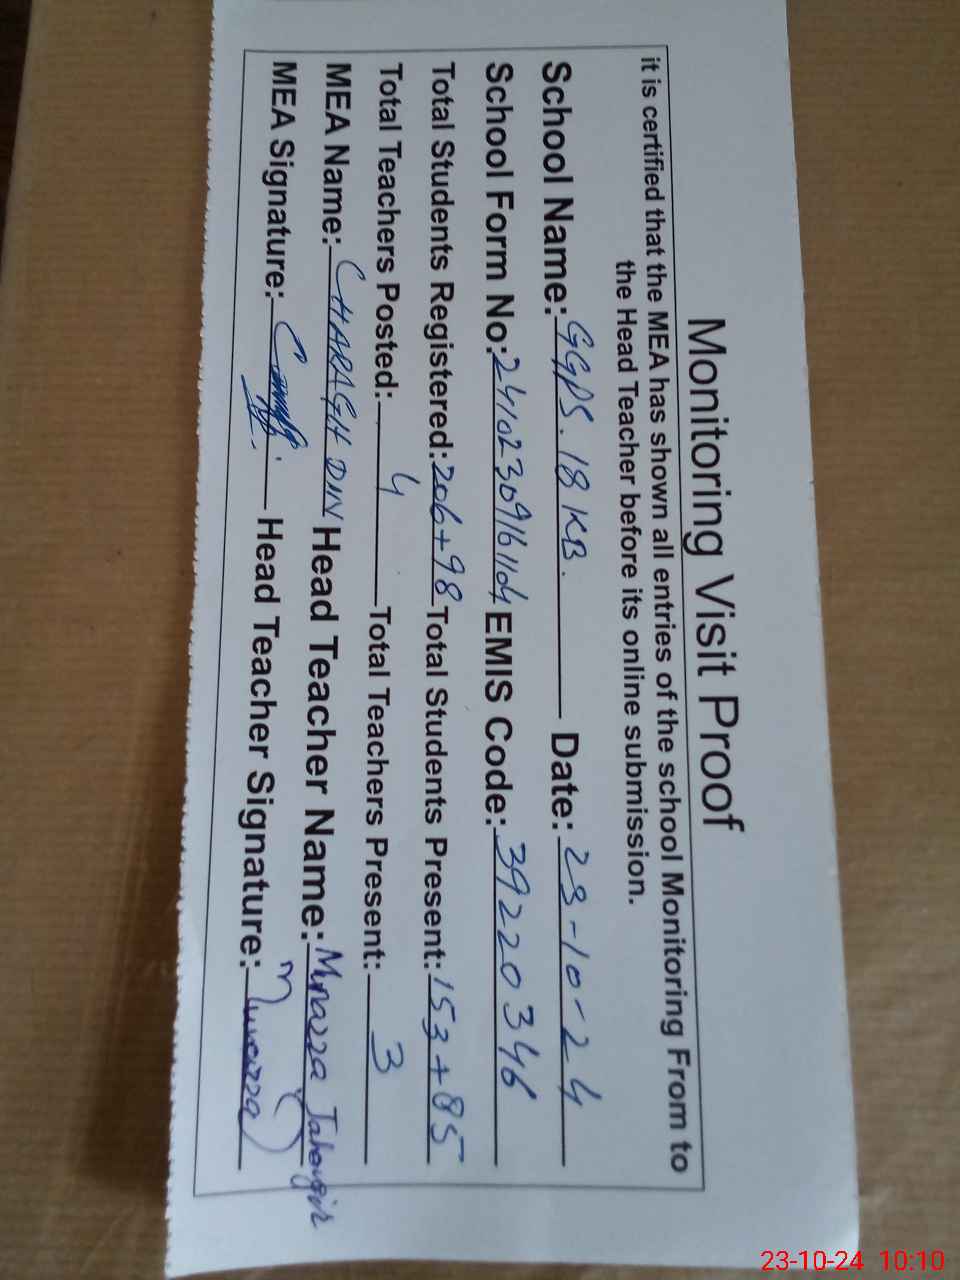 Monitoring Visit Proof
it is certified that the MEA has shown all entries of the school Monitoring From to
the Head Teacher before its online submission.
School Name: GGPS. 18 KB. Date: 23-10-24
School Form No: 24102309161104 EMIS Code: 39220346
Total Students Registered: 206+98 Total Students Present: 153+85
Total Teachers Posted: 4 Total Teachers Present: 3
MEA Name: CHARAGH DIN Head Teacher Name: Munazza Jahangir
MEA Signature: Head Teacher Signature: Munazza
23-10-24 10:10